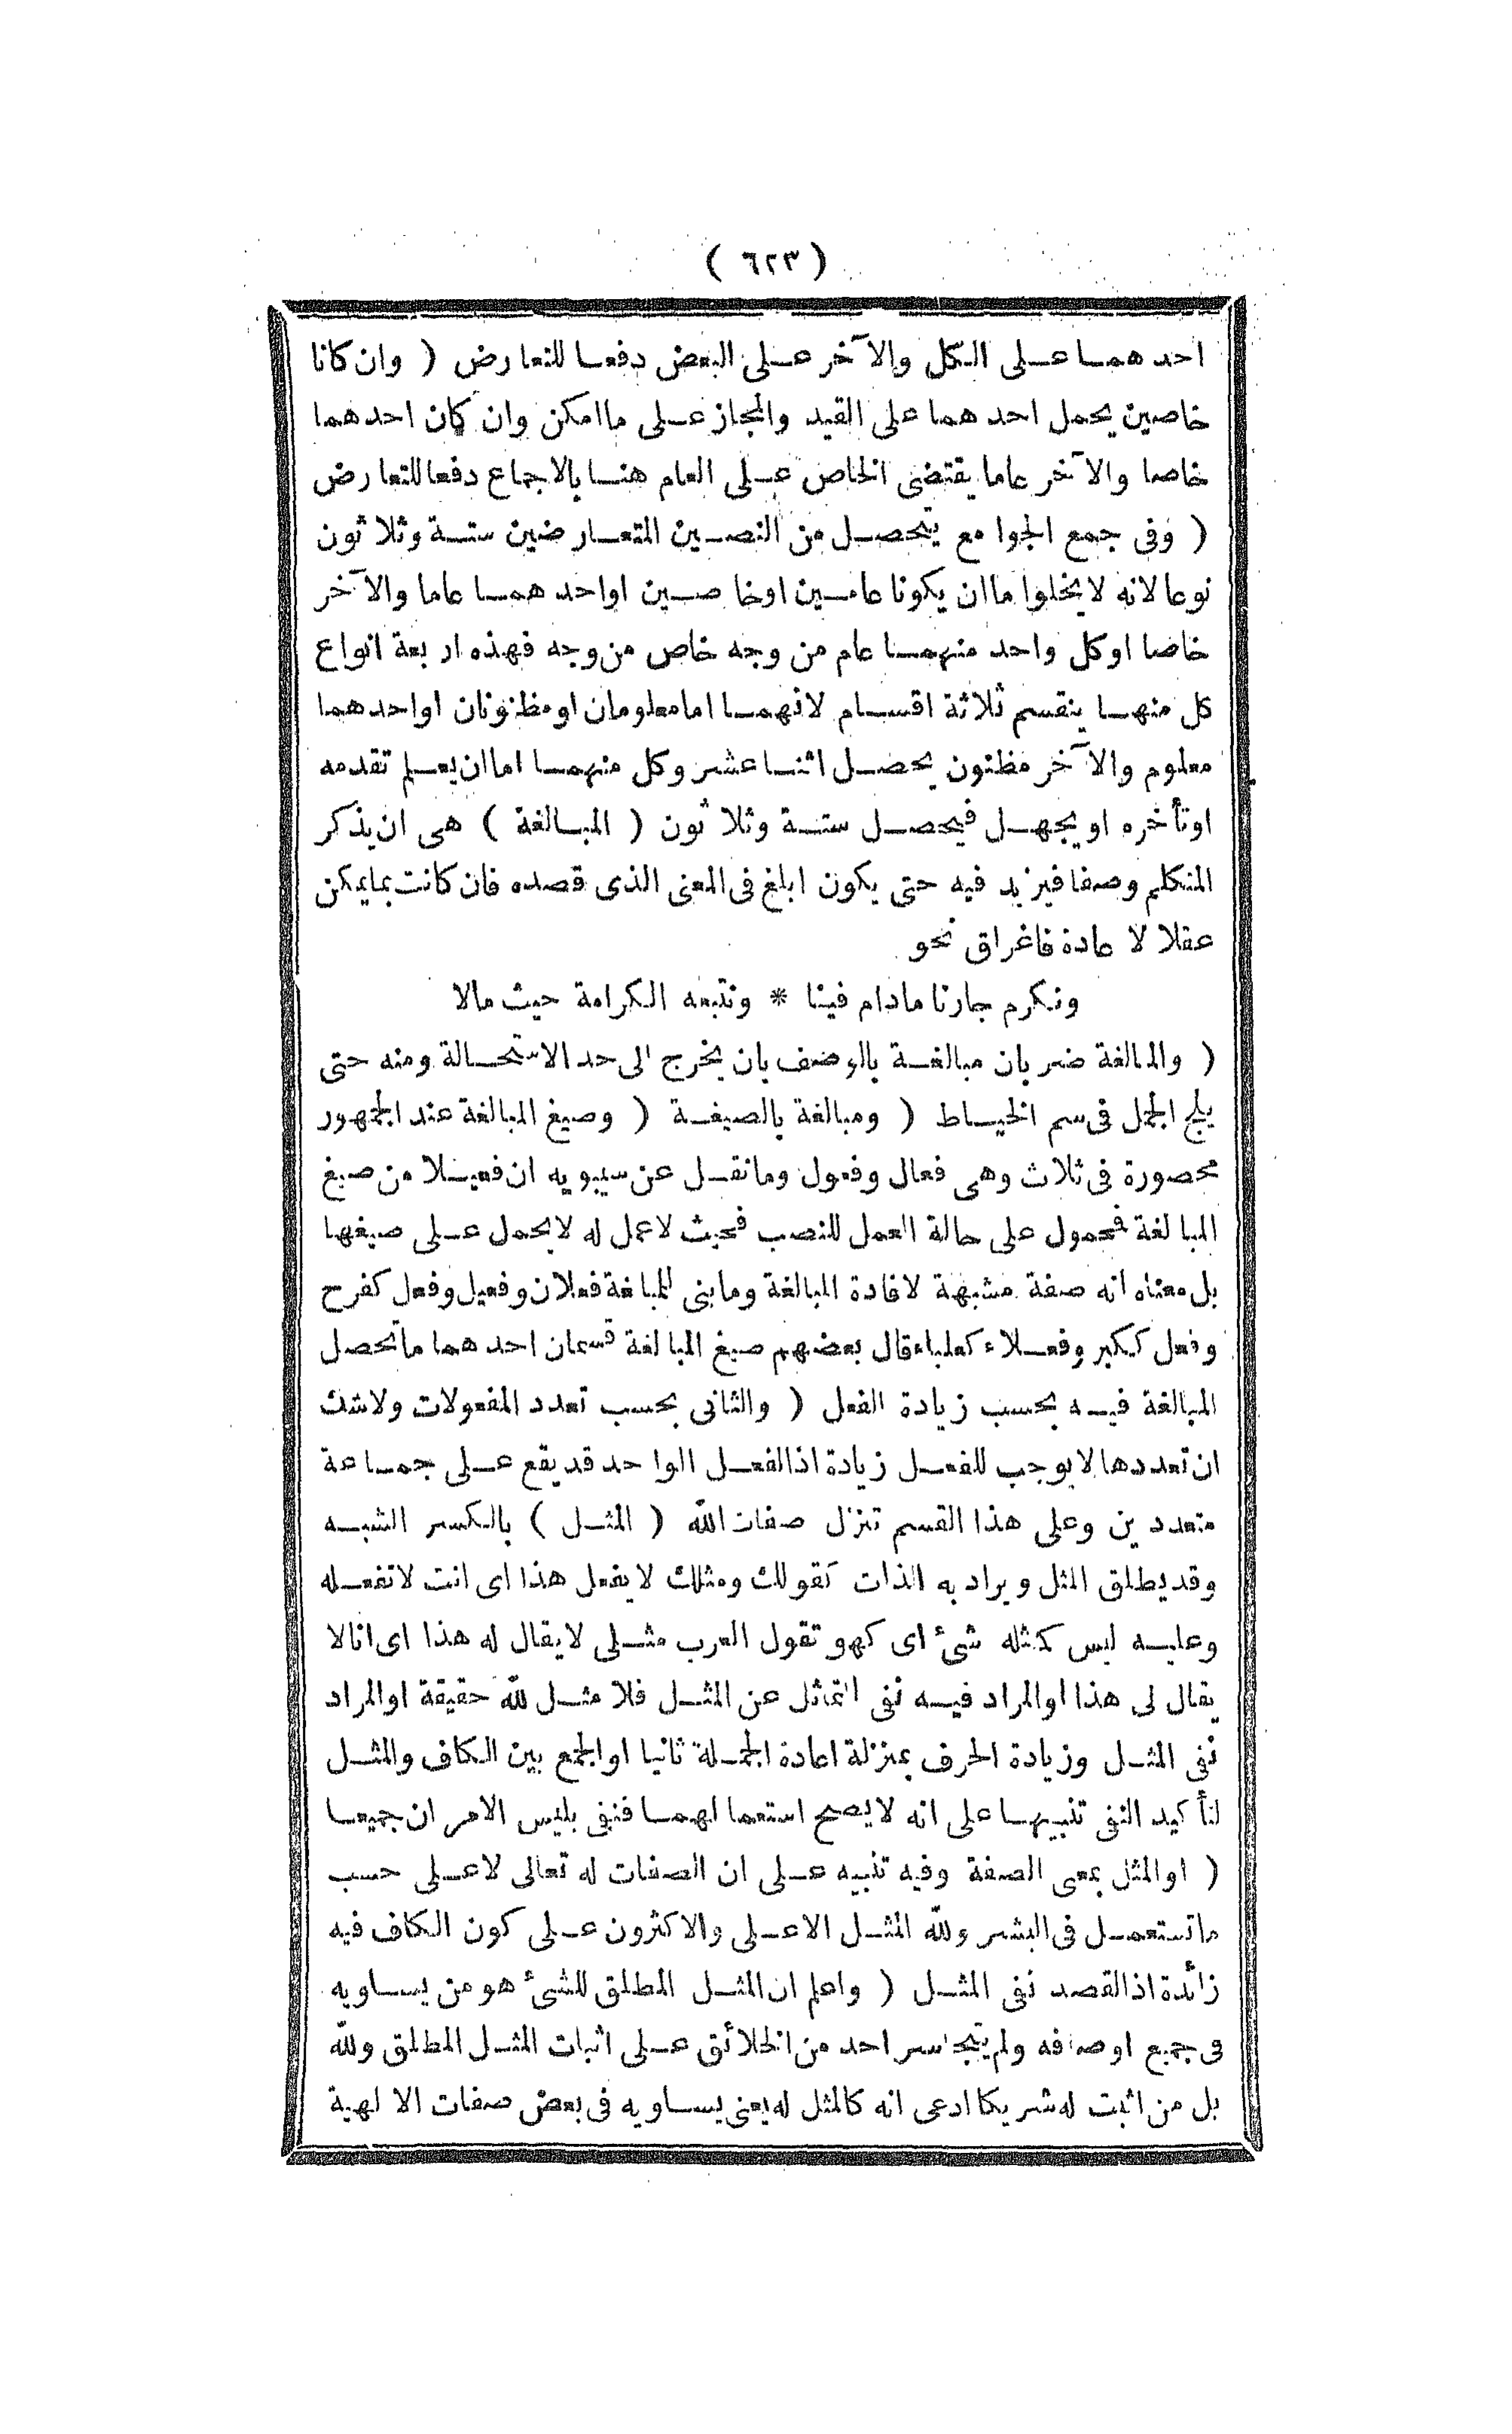 ( ٦٢٣ )
احدهما على الكل والآخر على البعض دفعا للتعارض ( وان كانا
خاصين يحمل احدهما على القيد والمجاز على ما امكن وان كان احدهما
خاصا والآخر عاما يقتضى الخاص على العام هنا بالاجماع دفعا للتعارض
( وفى جمع الجوامع يتحصل من النصين المتعارضين ستة وثلاثون
نوعا لانه لا يخلوا ما ان يكونا عامين اوخاصين اواحدهما عاما والآخر
خاصا اوكل واحد منهما عام من وجه خاص من وجه فهذه اربعة انواع
كل منها ينقسم ثلاثة اقسام لانهما اما معلومان اومظنونان اواحدهما
معلوم والآخر مظنون يحصل اثنا عشر وكل منهما اما ان يعلم تقدمه
اوتأخره او يجهل فيحصل ستة وثلاثون ( المبالغة ) هى ان يذكر
المتكلم وصفا فيزيد فيه حتى يكون ابلغ فى المعنى الذى قصده فان كانت بما يمكن
عقلا لا عادة فاغراق نحو
ونكرم جارنا مادام فينا * ونتبعه الكرامة حيث مالا
( والمبالغة ضربان مبالغة بالوصف بان يخرج الى حد الاستحالة ومنه حتى
يلج الجمل فى سم الخياط ( ومبالغة بالصيغة ( وصيغ المبالغة عند الجمهور
محصورة فى ثلاث وهى فعال وفعول وما نقل عن سيبويه ان فعيلا من صيغ
المبالغة فمحمول على حالة العمل للنصب فحيث لا عمل له لا يحمل على صيغها
بل معناه انه صفة مشبهة لافادة المبالغة وما بنى للمباغة فعلان وفعيل وفعل كفرح
وفعل ككبر وفعلاء كعلياء قال بعضهم صيغ المبالغة قسمان احدهما ما تحصل
المبالغة فيه بحسب زيادة الفعل ( والثانى بحسب تعدد المفعولات ولا شك
ان تعددها لا يوجب للفعل زيادة اذ الفعل الواحد قد يقع على جماعة
متعددين وعلى هذا القسم تنزل صفات الله ( المثل ) بالكسر الشبه
وقد يطلق المثل ويراد به الذات كقولك ومثلك لا يفعل هذا اى انت لا تفعله
وعليه ليس كمثله شئ اى كهو تقول العرب مثلى لا يقال له هذا اى انا لا
يقال لى هذا اوالمراد فيه نفى التماثل عن المثل فلا مثل لله حقيقة اوالمراد
نفى المثل وزيادة الحرف بمنزلة اعادة الجملة ثانيا اوالجمع بين الكاف والمثل
لتأكيد النفى تنبيها على انه لا يصح استعمالهما فنفى بليس الامران جميعا
( اوالمثل بمعى الصفة وفيه تنبيه على ان الصفات له تعالى لا على حسب
ما تستعمل فى البشر ولله المثل الاعلى والاكثرون على كون الكاف فيه
زائدة اذ القصد نفى المثل ( واعلم ان المثل المطلق للشئ هو من يساويه
فى جميع اوصافه ولم يتجاسر احد من الخلائق على اثبات المثل المطلق ولله
بل من اثبت له شريكا ادعى انه كالمثل له يعنى يساويه فى بعض صفات الالهية